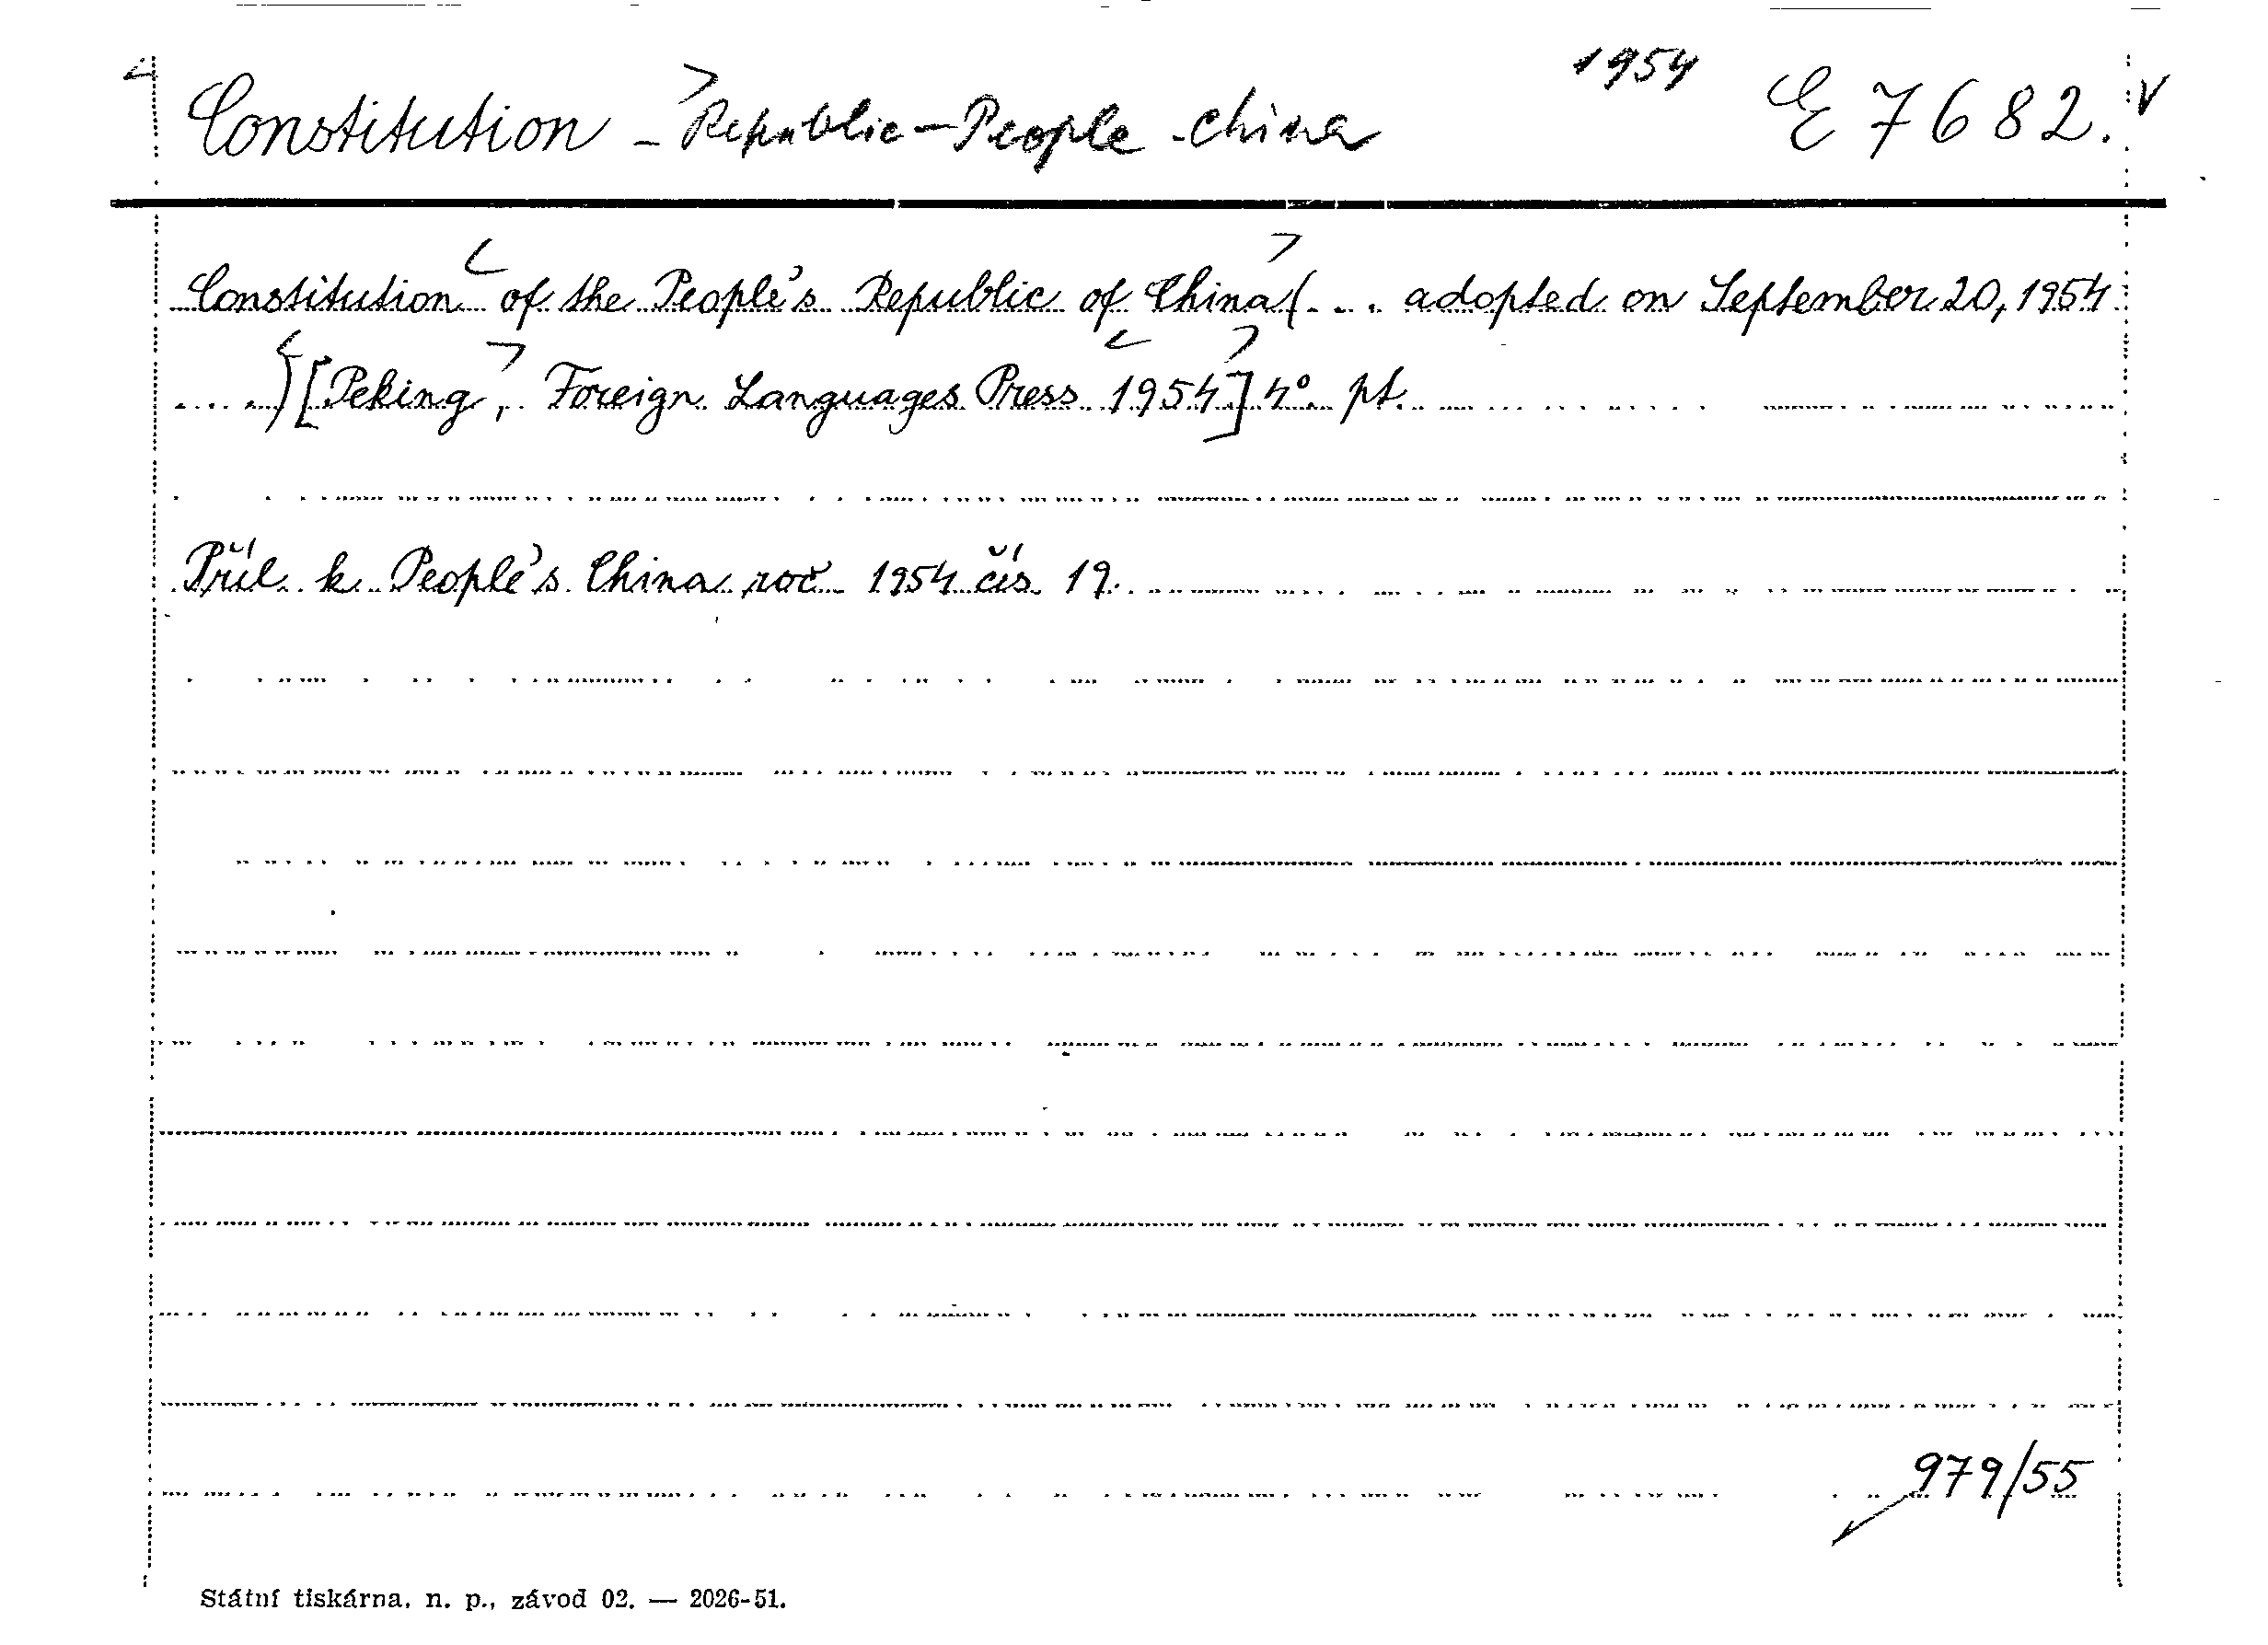 Constitution - Republic - People - China 1954 E 7682.
Constitution of the People's Republic of China (... adopted on September 20, 1954
....) [Peking, Foreign Languages Press 1954] 4° pt.
Příl. k People's China roč. 1954 čís. 19.
979/55
Státní tiskárna, n. p., závod 02. — 2026-51.